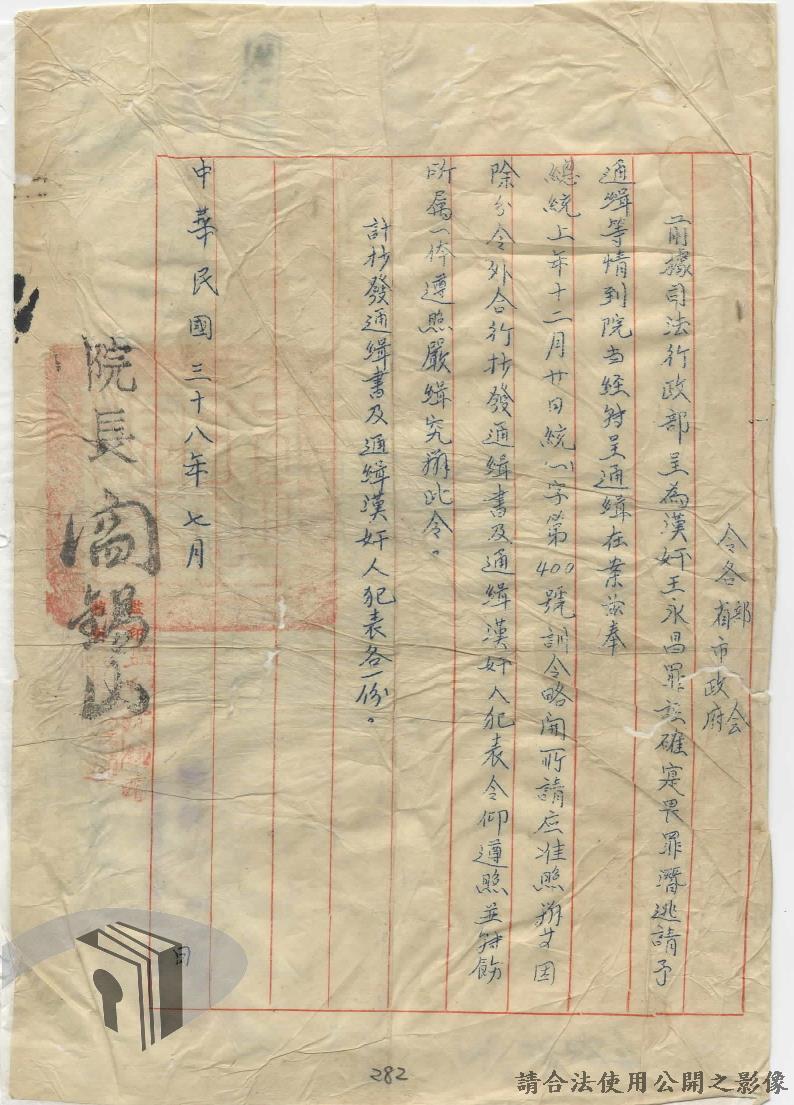 令各部会
省市政府
前據司法行政部呈為漢奸王永昌罪証確寔畏罪潛逃請予
通緝等情到院当經转呈通緝在案兹奉
總統上年十二月廿日統(一)字第400號訓令略開所請应准照辦等因
除分令外合行抄發通緝書及通緝漢奸人犯表令仰遵照並转飭
所属一体遵照嚴緝究辦此令。
計抄發通緝書及通緝漢奸人犯表各一份。
中華民國三十八年七月 日
院長閻錫山
282
請合法使用公開之影像